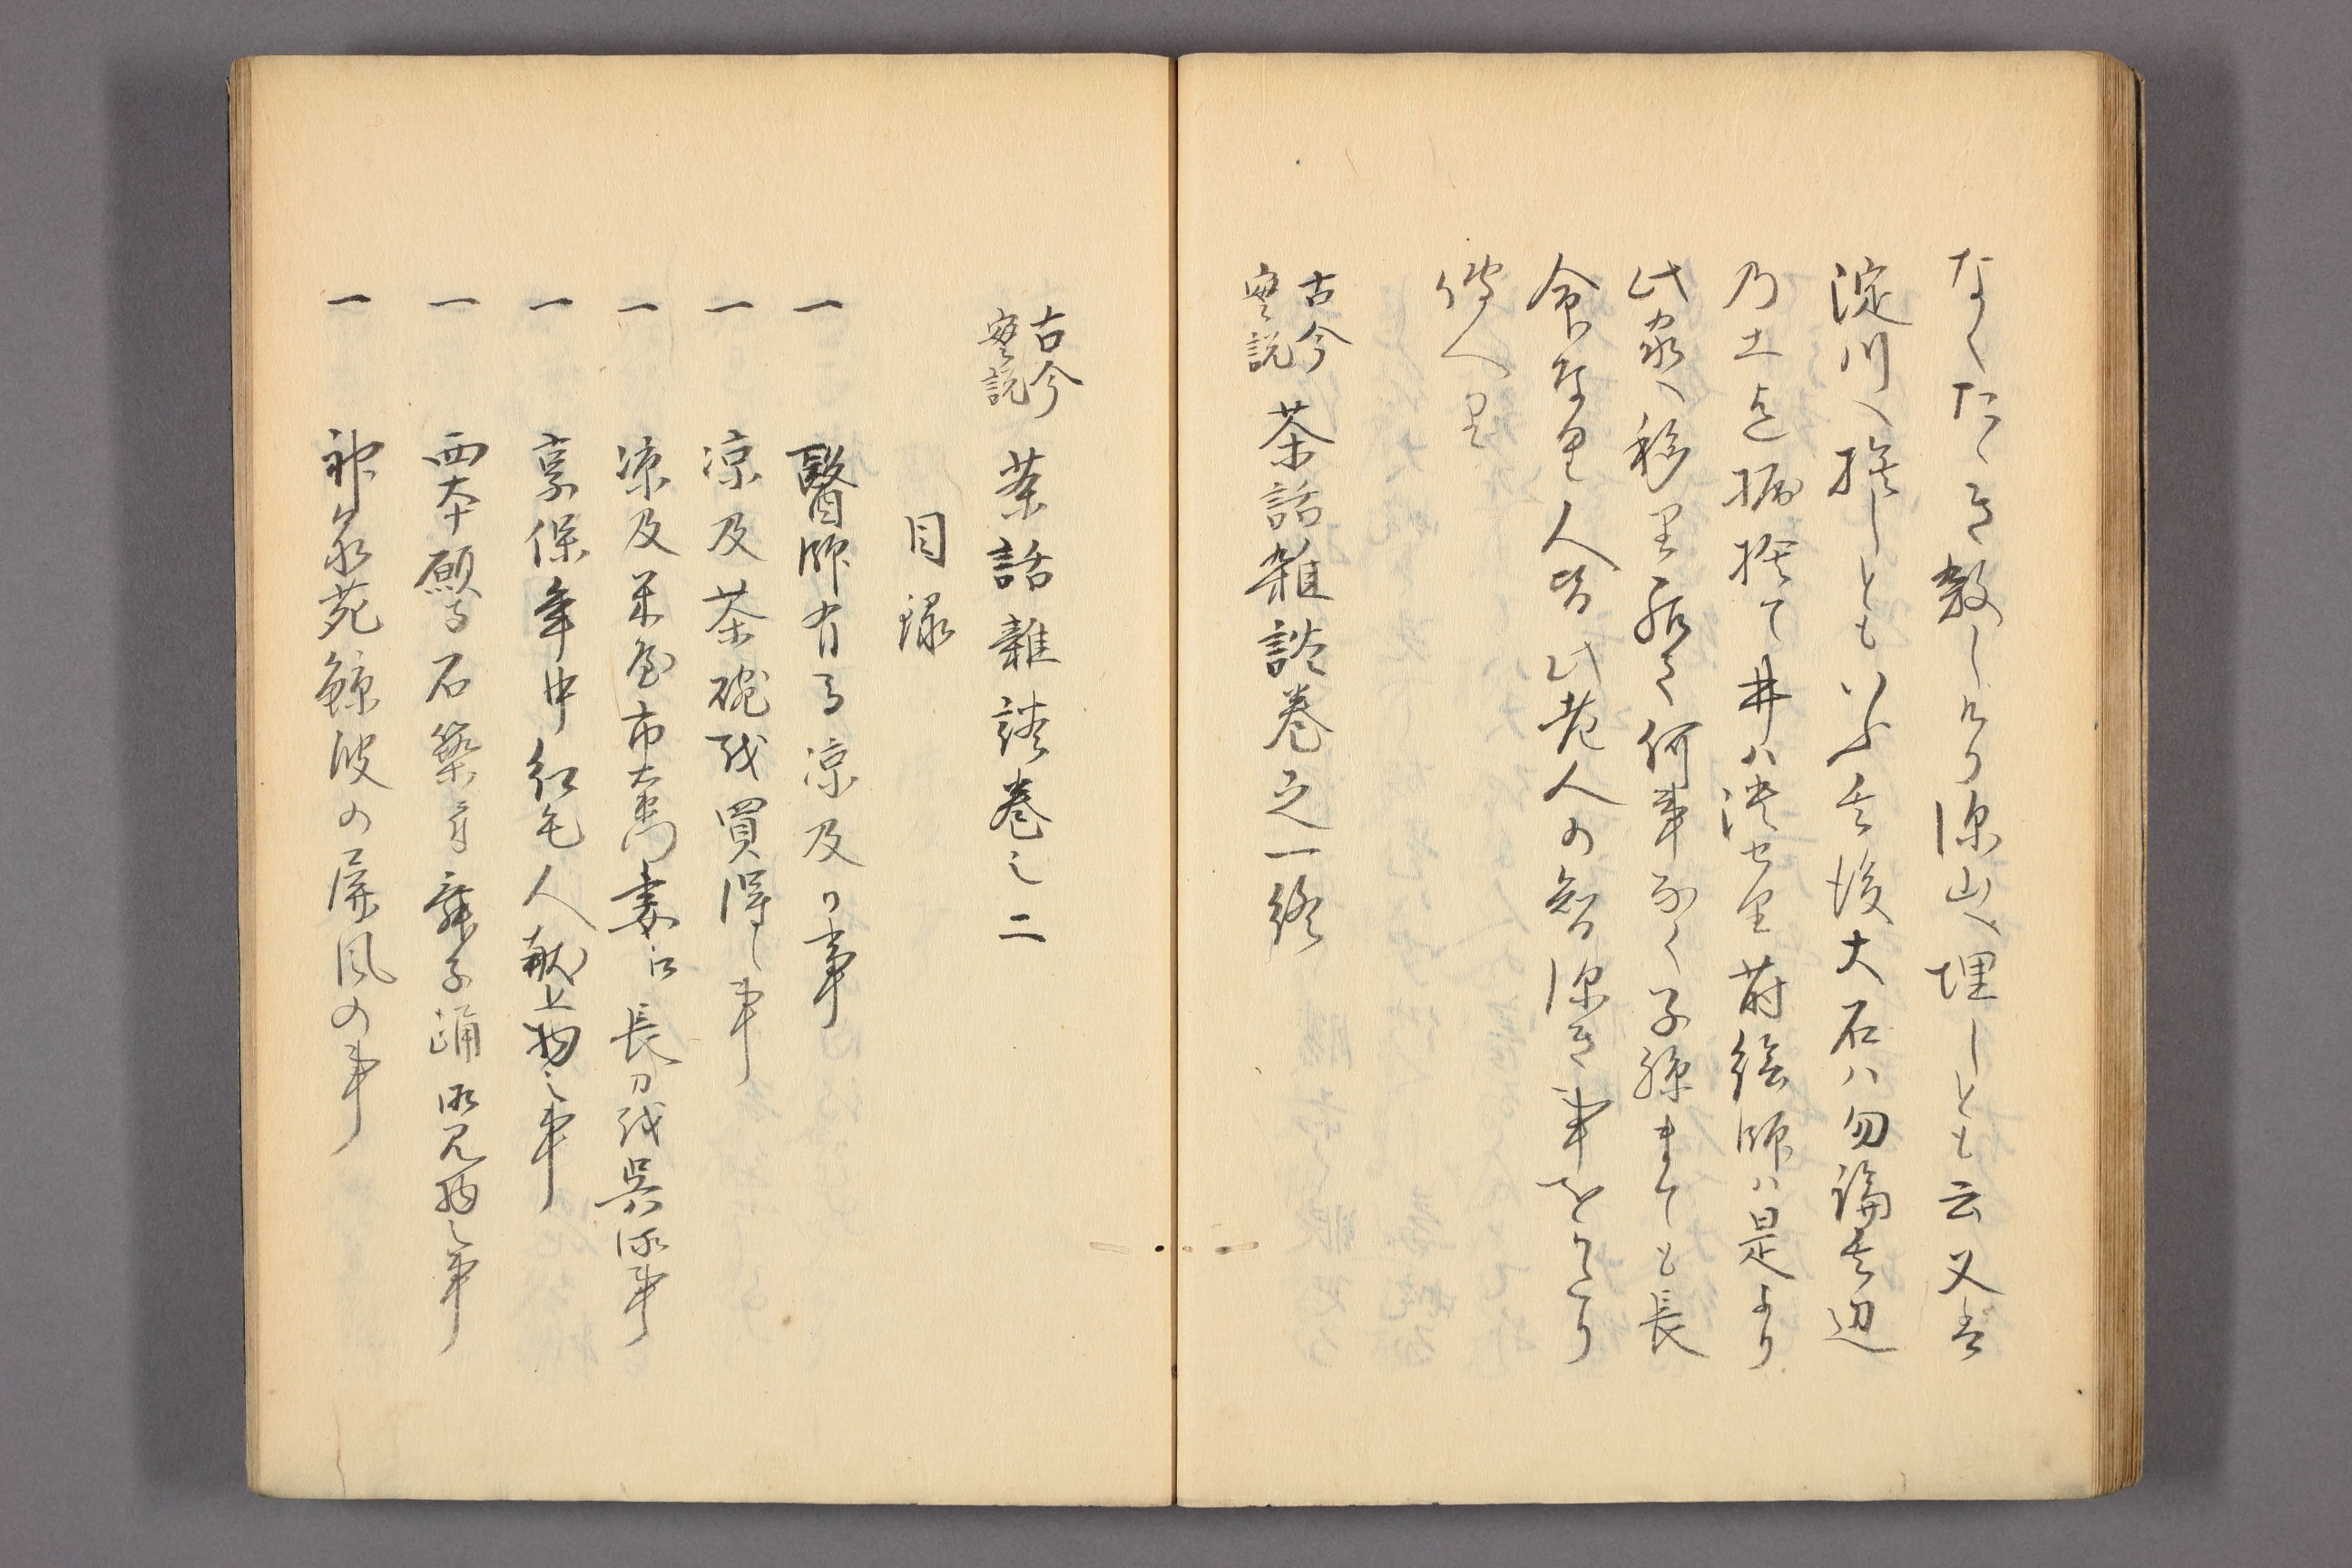 なくたゝき散しけり深山へ埋しとも云又は
淀川へ捨しともいふ其後大石ハ勿論其辺
乃土迄掘捨て井ハ浅せり蒔絵師ハ是より
此家へ移り居て何事なく子孫まても長
命なり人皆此老人の智深き事をかたり
傳へり
古今
実説
茶話雑談巻之一終
古今
実説
茶話雑談巻之二
目録
一 醫師有馬凉及の事
一 凉及茶碗を買得し事
一 凉及米屋市左衛門妻に長刀を呉候事
一 享保年中紅毛人献上物之事
一 西本願寺石築立舞子踊御見物之事
一 神泉苑鯨波の屏風の事